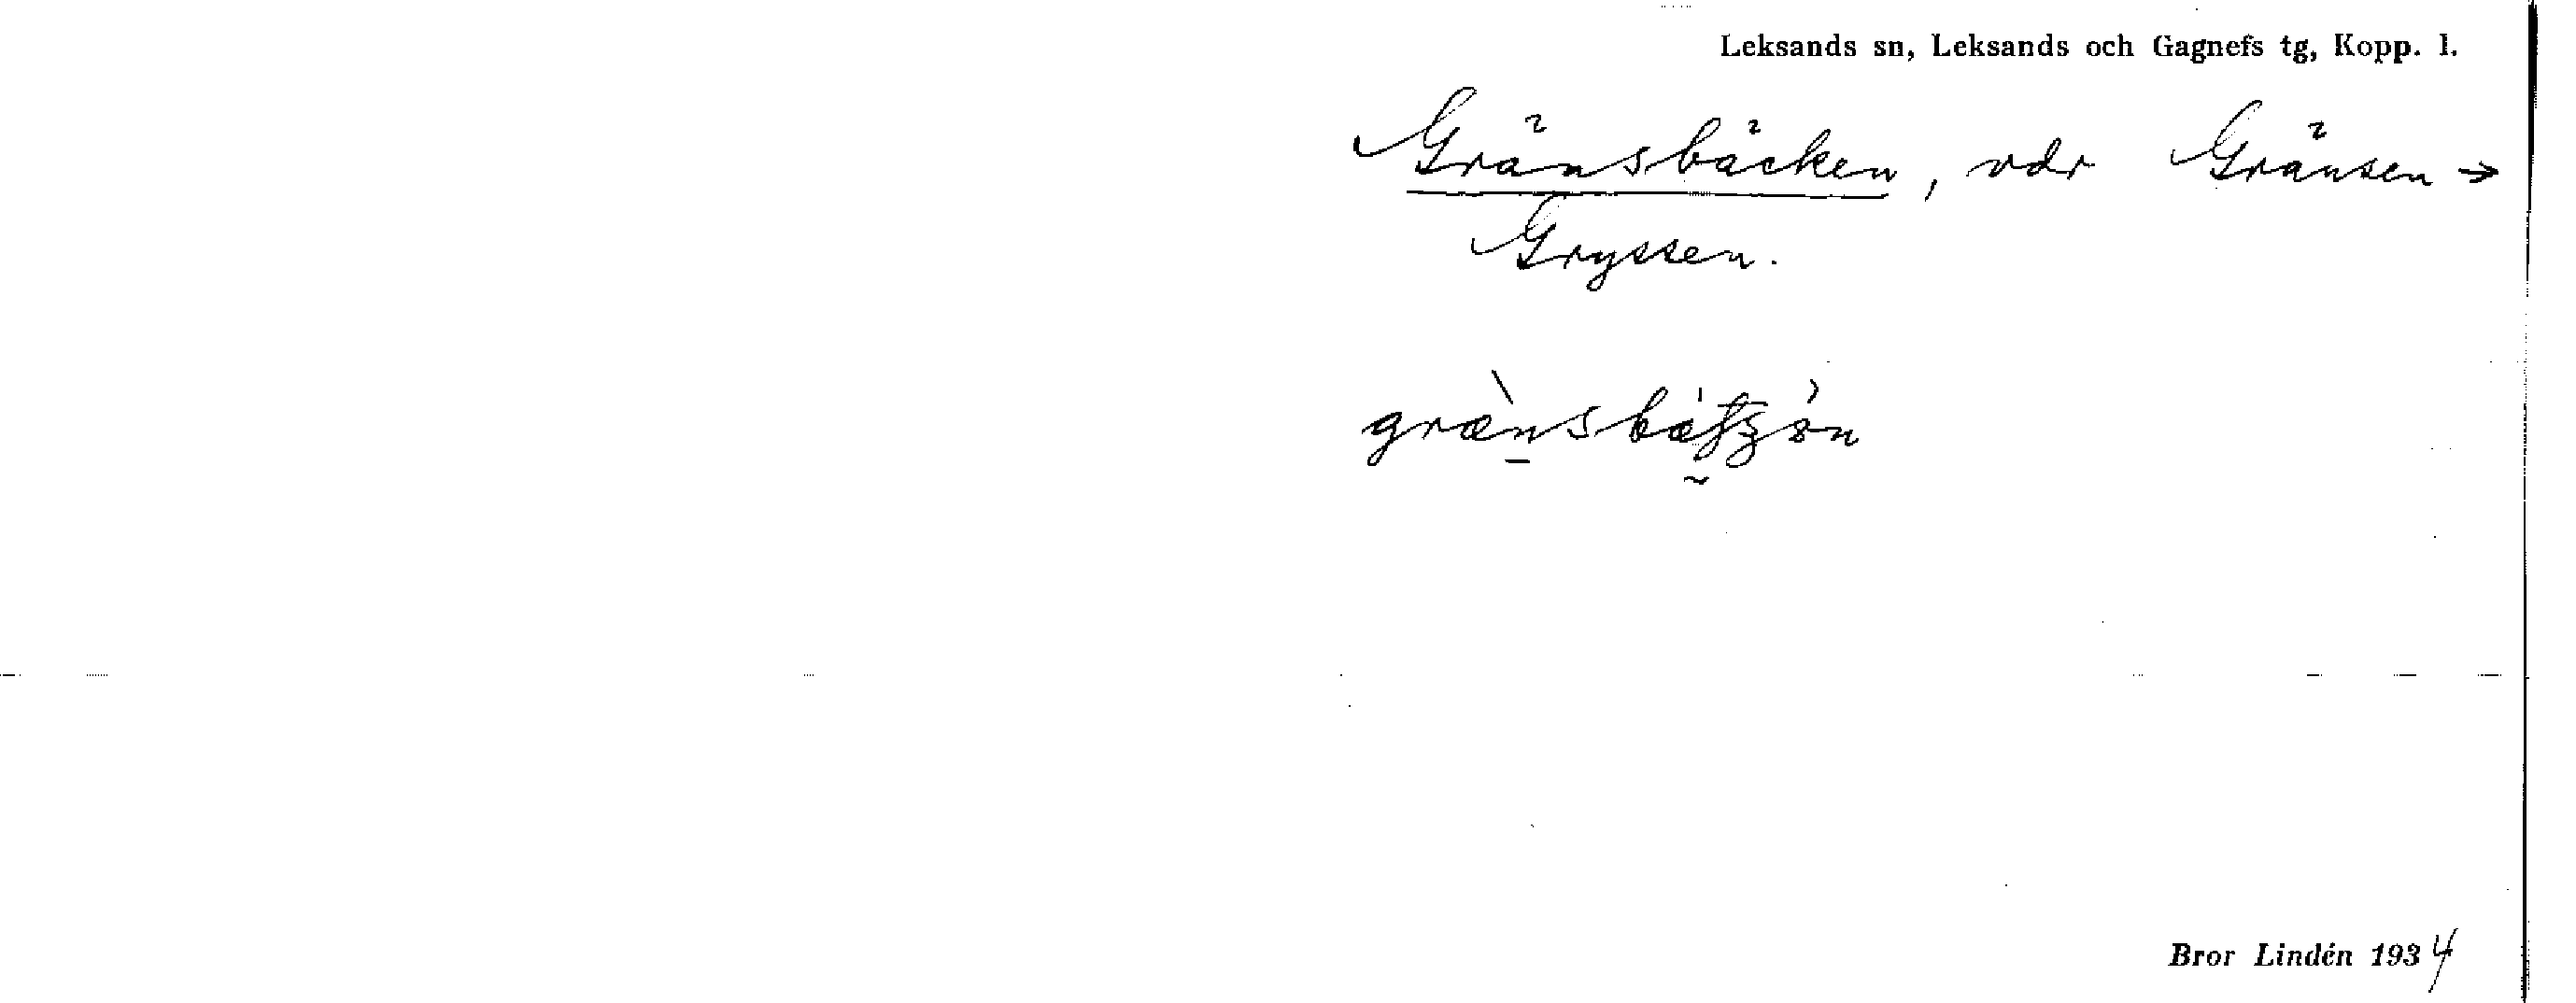 Leksands sn, Leksands och Gagnefs tg, Kopp. l.
Gränsbäcken, vdr Gränsen →
Gryssen.
Bror Lindén 1934